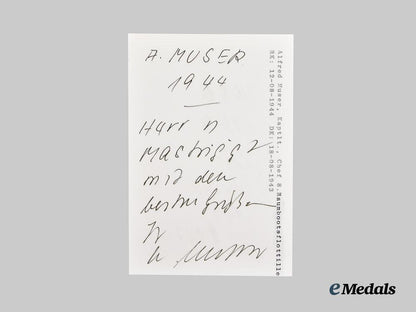 A. MUSER
1944
Herrn
Mastrigg
mit den
besten Grüßen
Ihr
A. Muser
Alfred Muser, Kaptlt., Chef 8.Raumbootsflottille
RK: 12-08-1944 DK: 18-08-1943
eMedals